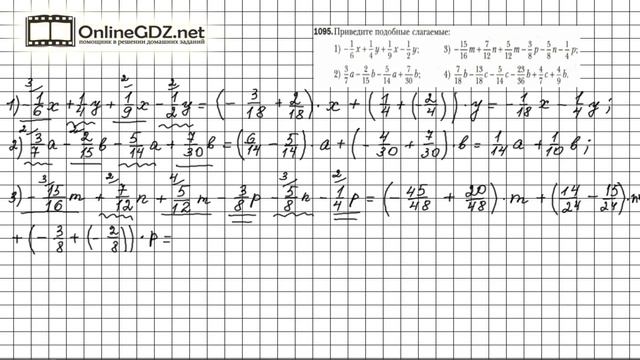 OnlineGDZ.net
помощник в решении домашних заданий
1095. Приведите подобные слагаемые:
1) -1/6x + 1/4y + 1/9x - 1/2y; 3) -15/16m + 7/12n + 5/12m - 3/8p - 5/8n - 1/4p;
2) 3/7a - 2/15b - 5/14a + 7/30b; 4) 7/18b - 13/18c - 5/14c - 23/36b + 4/7c + 4/9b.
1) -1/6x + 1/4y + 1/9x - 1/2y = (-3/18 + 2/18)·x + (1/4 + (-2/4))·y = -1/18x - 1/4y;
2) 3/7a - 2/15b - 5/14a + 7/30b = (6/14 - 5/14)·a + (-4/30 + 7/30)·b = 1/14a + 1/10b;
3) -15/16m + 7/12n + 5/12m - 3/8p - 5/8n - 1/4p = (-45/48 + 20/48)·m + (14/24 - 15/24)·n
+ (-3/8 + (-2/8))·p =